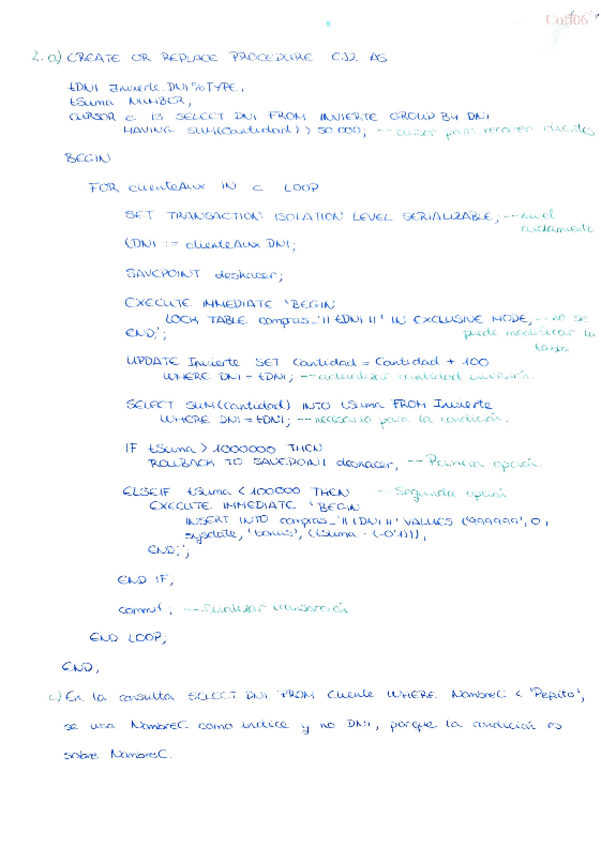 Cod06
2. a) CREATE OR REPLACE PROCEDURE EJ2 AS
tDNI Invierte.DNI%TYPE;
tSuma NUMBER;
CURSOR c IS SELECT DNI FROM INVIERTE GROUP BY DNI
HAVING SUM(Cantidad) > 50.000; -- cursor para recorrer clientes
BEGIN
FOR clienteAux IN c LOOP
SET TRANSACTION ISOLATION LEVEL SERIALIZABLE; -- nivel
aislamiento
tDNI := clienteAux.DNI;
SAVEPOINT deshacer;
EXECUTE IMMEDIATE 'BEGIN
LOCK TABLE compras_'|| tDNI ||' IN EXCLUSIVE MODE; -- no se
END;'; puede modificar la
tabla
UPDATE Invierte SET Cantidad = Cantidad + 100
WHERE DNI = tDNI; -- actualizar cantidad inversión.
SELECT SUM(cantidad) INTO tSuma FROM Invierte
WHERE DNI = tDNI; -- necesario para la condición.
IF tSuma > 1000000 THEN
ROLLBACK TO SAVEPOINT deshacer; -- Primera opción
ELSEIF tSuma < 100000 THEN -- Segunda opción
EXECUTE IMMEDIATE 'BEGIN
INSERT INTO compras_'|| tDNI ||' VALUES ('999999', 0,
sysdate, 'bonus', (tSuma * (-0'1)));
END;';
END IF;
commit; -- finalizar transacción
END LOOP;
END;
c) En la consulta SELECT DNI FROM Cliente WHERE NombreC < 'Pepito',
se usa NombreC como índice y no DNI, porque la condición es
sobre NombreC.